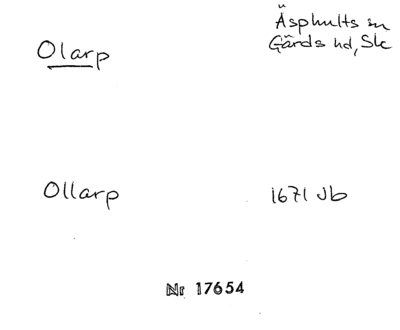 Olarp
Äsphults sn
Gärds hd, Skr
Ollarp
1671 Jb
Nr 17654